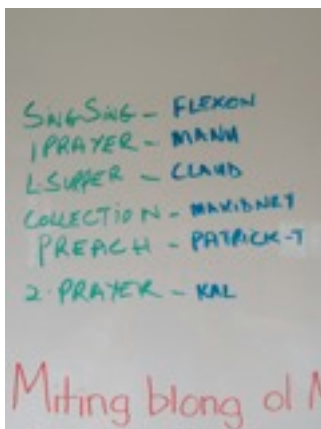 SiNGSiNG - FLEXON
1 PRAYER - MANU
L-SUPPER - CLAUD
COLLECTiON - MAKIDNEY
PREACH - PATRICK-T
2. PRAYER - KAL
Miting blong ol M